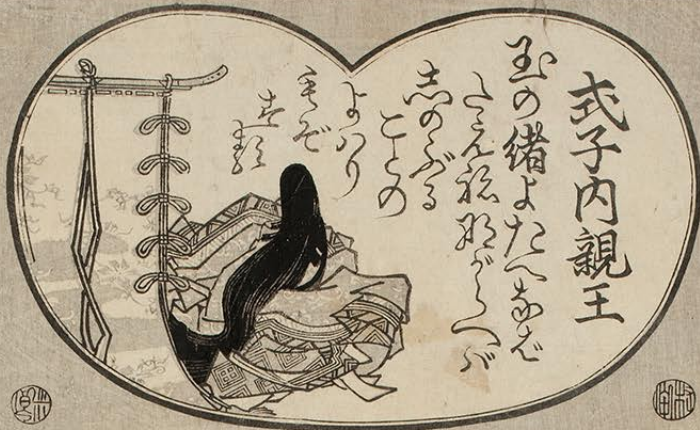 式子内親王
玉の緒よたへなば
たえねながらへば
志のぶる
ことの
よハり
もぞ
する